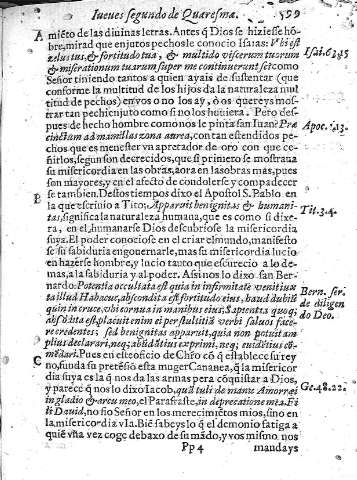 Iueues segundo de Quaresma. 299
A miẽto de las diuinas letras. Antes q̃ Dios se hiziesse hõ-
bre, mirad que enjutos pechos le conocio Isaias: Vbi est
zelus tuus, & fortitudo tua, & multido viscerum tuorum
& miserationum tuarum super me continuerunt se? como
Señor tiniendo tantos a quien ayais de sustentar (que
conforme la multitud de los hijos da la naturaleza mul
titud de pechos) en vos o no los ay, ò os quereys mos-
trar tan pechienjuto como si no los huuiera. Pero des-
pues de hecho hombre como nos le pinta san Iuan? Præ
cinctum ad mamillas zona aurea, con tan estendidos pe-
chos que es menester va apretador de oro con que ce-
ñirlos, segun son decrecidos, que si primero se mostraua
su misericordia en las obras, aora en las obras mas, pues
son mayores, y en el afecto de condolerse y compadecer
se tambien. Destos tiempos dixo el Apostol S. Pablo en
B la que escriuio a Tito; Apparuit benignitas & humani-
tas, significa la naturaleza humana, que es como si dixe-
ra, en el humanarse Dios descubriose la misericordia
suya. El poder conociose en el criar el mundo, manifesto
se su sabiduria en gouernarle, mas se misericordia lucio
en hazerse hombre, y lucio tanto que escurecio a lo de-
mas, a la sabiduria y al poder. Assi nos lo dixo san Ber-
nardo: Potentia occultata est quia in infirmitate veni iux
ta illud Habacuc, abscondita est fortitudo eius, haud dubiũ
quin in cruce, vbi cornua in manibus eius; Sapientia quoq;
abscõdita est, placuit enim ei per stultitiã verbi saluos face-
re credentes; sed benignitas apparuit, quia non potuit am
plius declarari, neq; abũdãtius exprimi, neq; euidẽtius cõ-
mẽdari. Pues en este oficio de Chrõ cõ q̃ establece su rey
C no, funda su pretẽsiõ esta muger Cananea, q̃ la misericor
dia suya es la q̃ nos da las armas pera cõquistar a Dios,
y parece q̃ nos lo dixo Iacob, quã tuli de manu Amorræi
in gladio & arcu meo, el Parafraste, in deprecatione mea. Fi
li Dauid, no fio Señor en los merecimiẽtos mios, sino en
la misericordia vr̃a. Biẽ sabeys lo q̃ el demonio fatiga a
quiẽ vña vez coge debaxo de su mãdo, y vos mismo nos
Pp 4 mandays
Isai. 63.15
Apoc. 1.13.
Tit. 3.4.
Bern. ser.
de diligen.
do Deo.
Ge. 48.22.